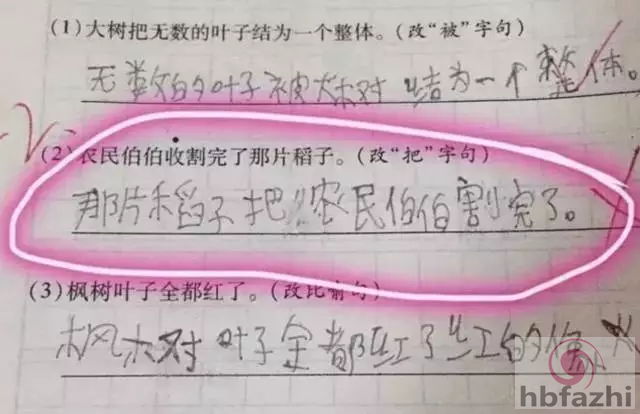 (1)大树把无数的叶子结为一个整体。(改“被”字句)
无数的叶子被大树结为一个整体。
(2)农民伯伯收割完了那片稻子。(改“把”字句)
那片稻子把农民伯伯割完了。
(3)枫树叶子全都红了。(改比喻句)
枫树叶子全都红了红的像
hbfazhi